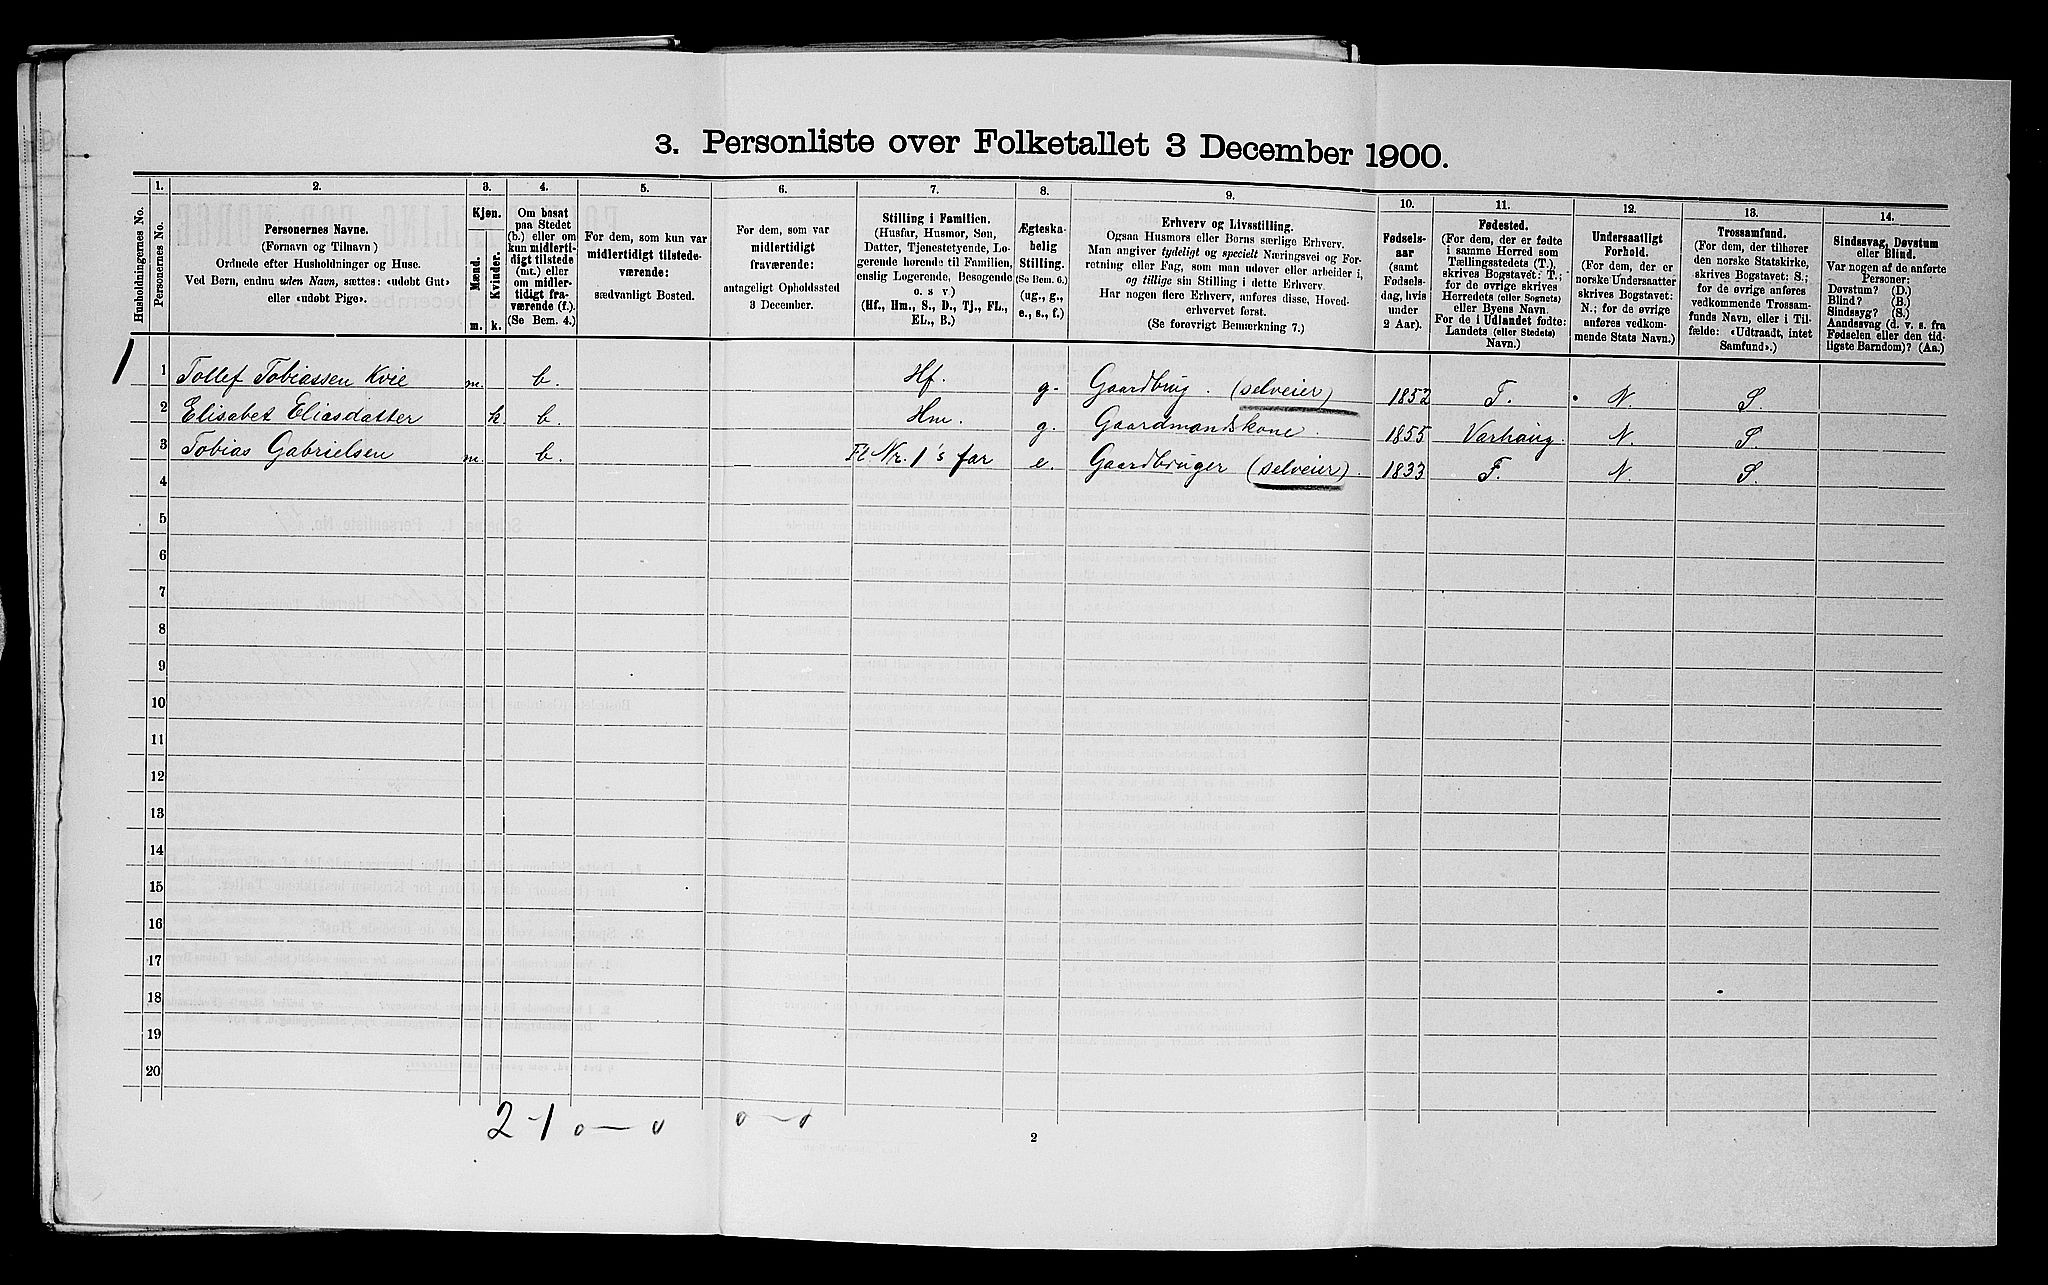 3. Personliste over Folketallet 3 December 1900.
Husholdningernes No.
1.
Personernes No.
2.
Personernes Navne.
(Fornavn og Tilnavn)
Ordnede efter Husholdninger og Huse.
Ved Børn, endnu uden Navn, sættes: «udøbt Gut»
eller «udøbt Pige».
3.
Kjøn.
Mænd.
Kvinder.
m.
k.
4.
Om bosat
paa Stedet
(b.) eller om
kun midlerti-
digt tilstede
(mt.) eller
om midler-
tidigt fra-
værende (f.).
(Se Bem. 4.)
5.
For dem, som kun var
midlertidigt tilstede-
værende:
sædvanligt Bosted.
6.
For dem, som var
midlertidigt
fraværende:
antageligt Opholdssted
3 December.
7.
Stilling i Familien.
(Husfar, Husmor, Søn,
Datter, Tjenestetyende, Lo-
gerende hørende til Familien,
enslig Logerende, Besøgende
o. s v)
(Hf., Hm., S., D., Tj., FL.,
EL., B.)
8.
Ægteska-
belig
Stilling.
(Se Bem. 6.)
(ug., g.,
e., s., f.)
9.
Erhverv og Livsstilling.
Ogsaa Husmors eller Børns særlige Erhverv.
Man angiver tydeligt og specielt Næringsvei og For-
retning eller Fag, som man udøver eller arbeider i,
og tillige sin Stilling i dette Erhverv.
Har nogen flere Erhverv, anføres disse, Hoved-
erhvervet først.
(Se forøvrigt Bemærkning 7.)
10.
Fødsels-
aar
(samt
Fødsels-
dag, hvis
under
2 Aar).
11.
Fødested.
(For dem, der er fødte
i samme Herred som
Tællingsstedets (T.),
skrives Bogstavet: T.;
for de øvrige skrives
Herredets (eller Sognets)
eller Byens Navn.
For de i Udlandet fødte:
Landets (eller Stedets)
Navn.)
12.
Undersaatligt
Forhold.
(For dem, der er
norske Undersaatter
skrives Bogstavet:
N.; for de øvrige
anføres vedkom-
mende Stats Navn.)
13.
Trossamfund.
(For dem, der tilhører
den norske Statskirke,
skrives Bogstavet: S.;
for de øvrige anføres
vedkommende Trossam-
funds Navn, eller i Til-
fælde: «Udtraadt, intet
Samfund».)
14.
Sindssvag, Døvstum
eller Blind.
Var nogen af de anførte
Personer:
Døvstum? (D.)
Blind? (B.)
Sindssyg? (S.)
Aandssvag (d. v. s. fra
Fødselen eller den tid-
ligste Barndom)? (Aa.)
1 1 Tollef Tobiassen Kvie m. b. Hf. g. Gaardbrug. (selveier) 1852 T. N. S.
2 Elisabet Eliasdatter k. b. Hm. g. Gaardmandskone. 1855 Varhaug. N. S
3 Tobias Gabrielsen m. b. Fl Nr. 1's far e. Gaardbruger (selveier). 1833 T. N. S.
4
5
6
7
8
9
10
11
12
13
14
15
16
17
18
19
20
2-1 0-0 0-0
2